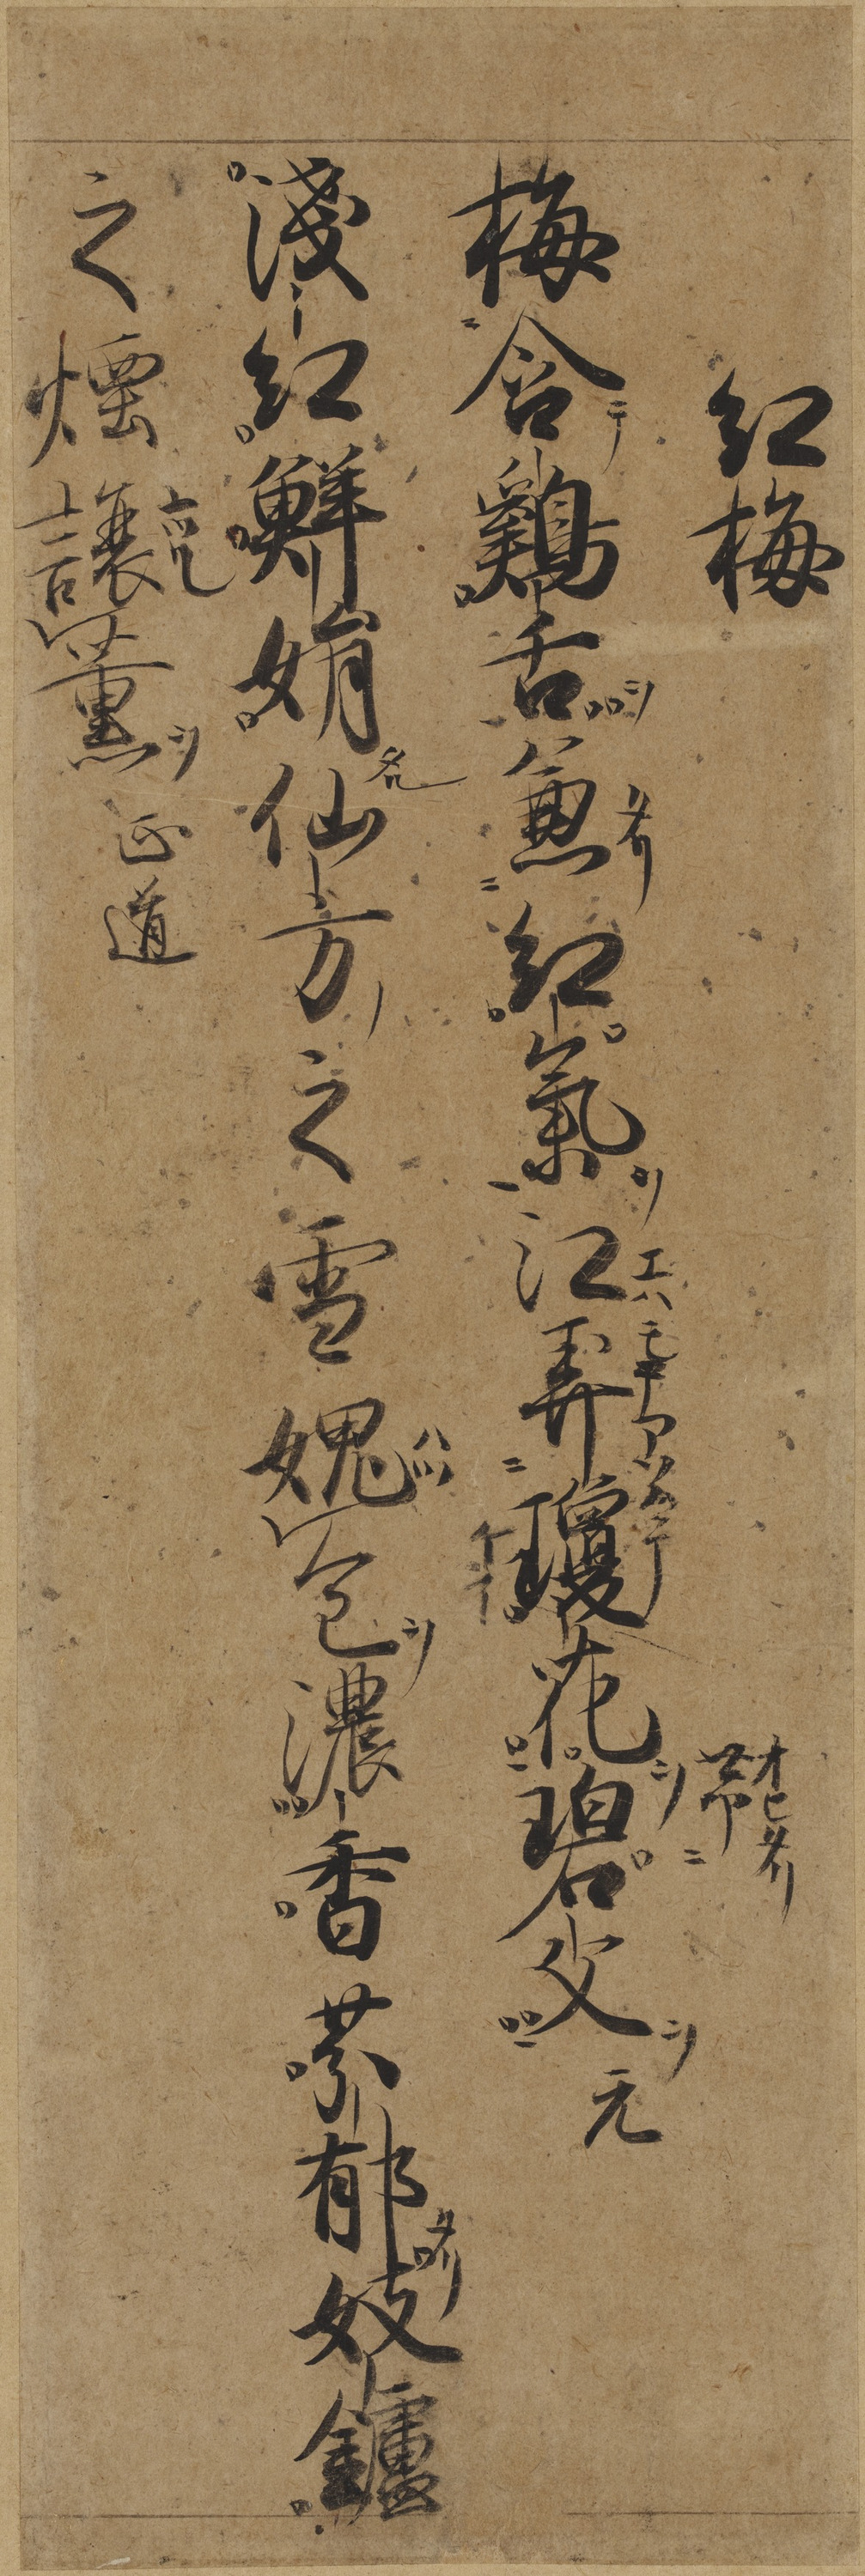 紅梅
梅含鷄舌兼紅氣江弄瓊花碧文 元
淺紅鮮娟仙方之雪媿色濃香芬郁妓鑪
之煙讓薫 正道